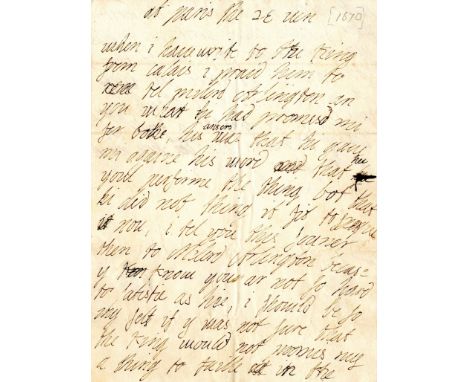 at paris the 28 iune [1670]
when i have writ to the King
from calais i praid him to
tel milord Arlington an
you what he had promised mi
for bothe his ansers was that hi gave
mi againe his word that hee
would performe the thing bot that
hi did not thing it fit to exequte
it now, i tel you this sooner
then to Milord Arlington becase
y know you ar not so hard
to satisfie as hee, i should be so
my self if y was not sure that
the King would not promis my
a thing to faille in the